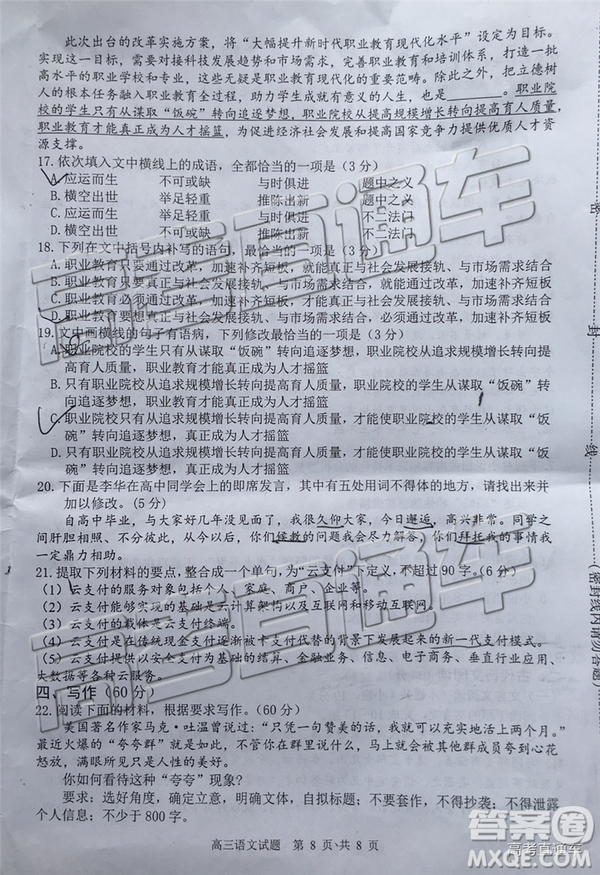 此次出台的改革实施方案，将“大幅提升新时代职业教育现代化水平”设定为目标。
实现这一目标，需要对接科技发展趋势和市场需求，完善职业教育和培训体系，打造一批
高水平的职业学校和专业，这些无疑是职业教育现代化的重要范畴。除此之外，把立德树
人的根本任务融入职业教育全过程，助力学生成就有意义的人生，也是________。职业院
校的学生只有从谋取“饭碗”转向追逐梦想，职业院校从提高规模增长转向提高育人质量，
职业教育才能真正成为人才摇篮，为促进经济社会发展和提高国家竞争力提供优质人才
资源支撑。
17.依次填入文中横线上的成语，全都恰当的一项是（3 分）
A.应运而生 不可或缺 与时俱进 题中之义
B.横空出世 举足轻重 推陈出新 题中之义
C.应运而生 举足轻重 推陈出新 不二法门
D.横空出世 不可或缺 与时俱进 不二法门
18.下列在文中括号内补写的语句，最恰当的一项是（3 分）
A.职业教育只要通过改革，加速补齐短板，就能真正与社会发展接轨、与市场需求结合
B.职业教育只要通过改革，真正与社会发展接轨、与市场需求结合，就能加速补齐短板
C.职业教育必须通过改革，真正与社会发展接轨、与市场需求结合，加速补齐短板
D.职业教育必须通过改革，加速补齐短板，真正与社会发展接轨、与市场需求结合
19.文中画横线的句子有语病，下列修改最恰当的一项是（3 分）
A.职业院校的学生只有从谋取“饭碗”转向追逐梦想，职业院校从追求规模增长转向提
高育人质量，职业教育才能真正成为人才摇篮
B.只有职业院校从追求规模增长转向提高育人质量，职业院校的学生从谋取“饭碗”转
向追逐梦想，职业教育才能真正成为人才摇篮
C.职业院校只有从追求规模增长转向提高育人质量，才能使职业院校的学生从谋取“饭
碗”转向追逐梦想，真正成为人才摇篮
D.只有职业院校从追求规模增长转向提高育人质量，才能使职业院校的学生从谋取“饭
碗”转向追逐梦想，真正成为人才摇篮
20.下面是李华在高中同学会上的即席发言，其中有五处用词不得体的地方，请找出来并
加以修改。（5 分）
自高中毕业，与大家好几年没见面了，我很久仰大家，今日邂逅，高兴非常。同学之
间肝胆相照，你们请教的问题我会尽力解答，你们拜托我的事情我
一定鼎力相助。
21.提取下列材料的要点，整合成一个单句，为“云支付”下定义，不超过 90 字。（6 分）
（1）云支付的服务对象包括个人、家庭、商户、企业等。
（2）云支付能够实现的基础是云计算架构以及互联网和移动互联网。
（3）云支付的载体是云支付终端。
（4）云支付是在传统现金支付逐渐被卡支付代替的背景下发展起来的新一代支付模式。
（5）云支付提供以安全支付为基础的结算、金融业务、信息、电子商务、行业应用、
大数据等各种云服务。
四、写作（60 分）
22.阅读下面的材料，根据要求写作。（60 分）
美国著名作家马克·吐温曾说过：“只凭一句赞美的话，我就可以充实地活上两个月。”
最近火爆的“夸夸群”就是这样，不管你在群里说什么，马上就会被其他群成员夸到心花
怒放，尽享渲染人性的美好。
你如何看待这种“夸夸”现象？
要求：选好角度，确定立意，明确文体，自拟标题；不要套作，不得抄袭；不得泄露
个人信息；不少于 800 字。
高三语文试题 第 8 页·共 8 页
密
封
线
（密封线内请勿答题）
高考直通车
答案圈
MXQE.COM
高考直通车